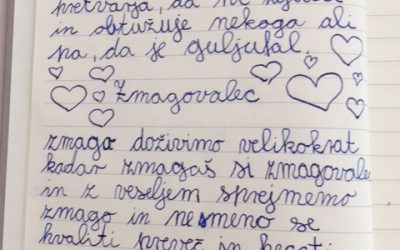 pretvarja, da ni
in obtužuje nekoga ali
pa, da je goljufal.
Zmagovalec
zmago doživimo velikokrat
kadar zmagaš si zmagovalec
in z veseljem sprejmemo
zmago in nesmemo se
hvaliti preveč in